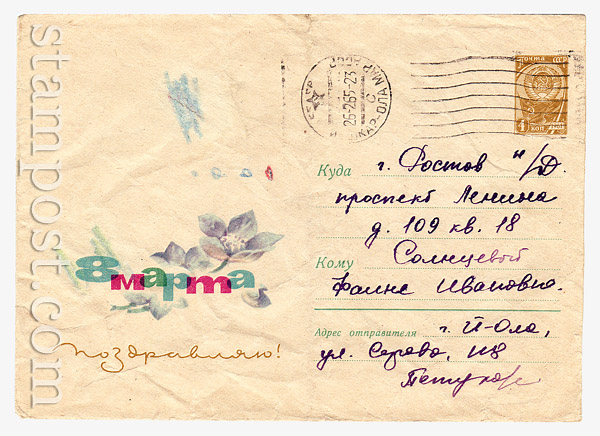 stampost.com
почта СССР
4 коп
СССР
26-2 65-23
ЙОШКАР-ОЛА МАР АССР
Куда г. Ростов н/Д.
проспект Ленина
д. 109 кв. 18
Кому Солнцевой
Фаине Ивановне.
8 марта
Адрес отправителя г. Й-Ола,
поздравляю!
ул. Серова,